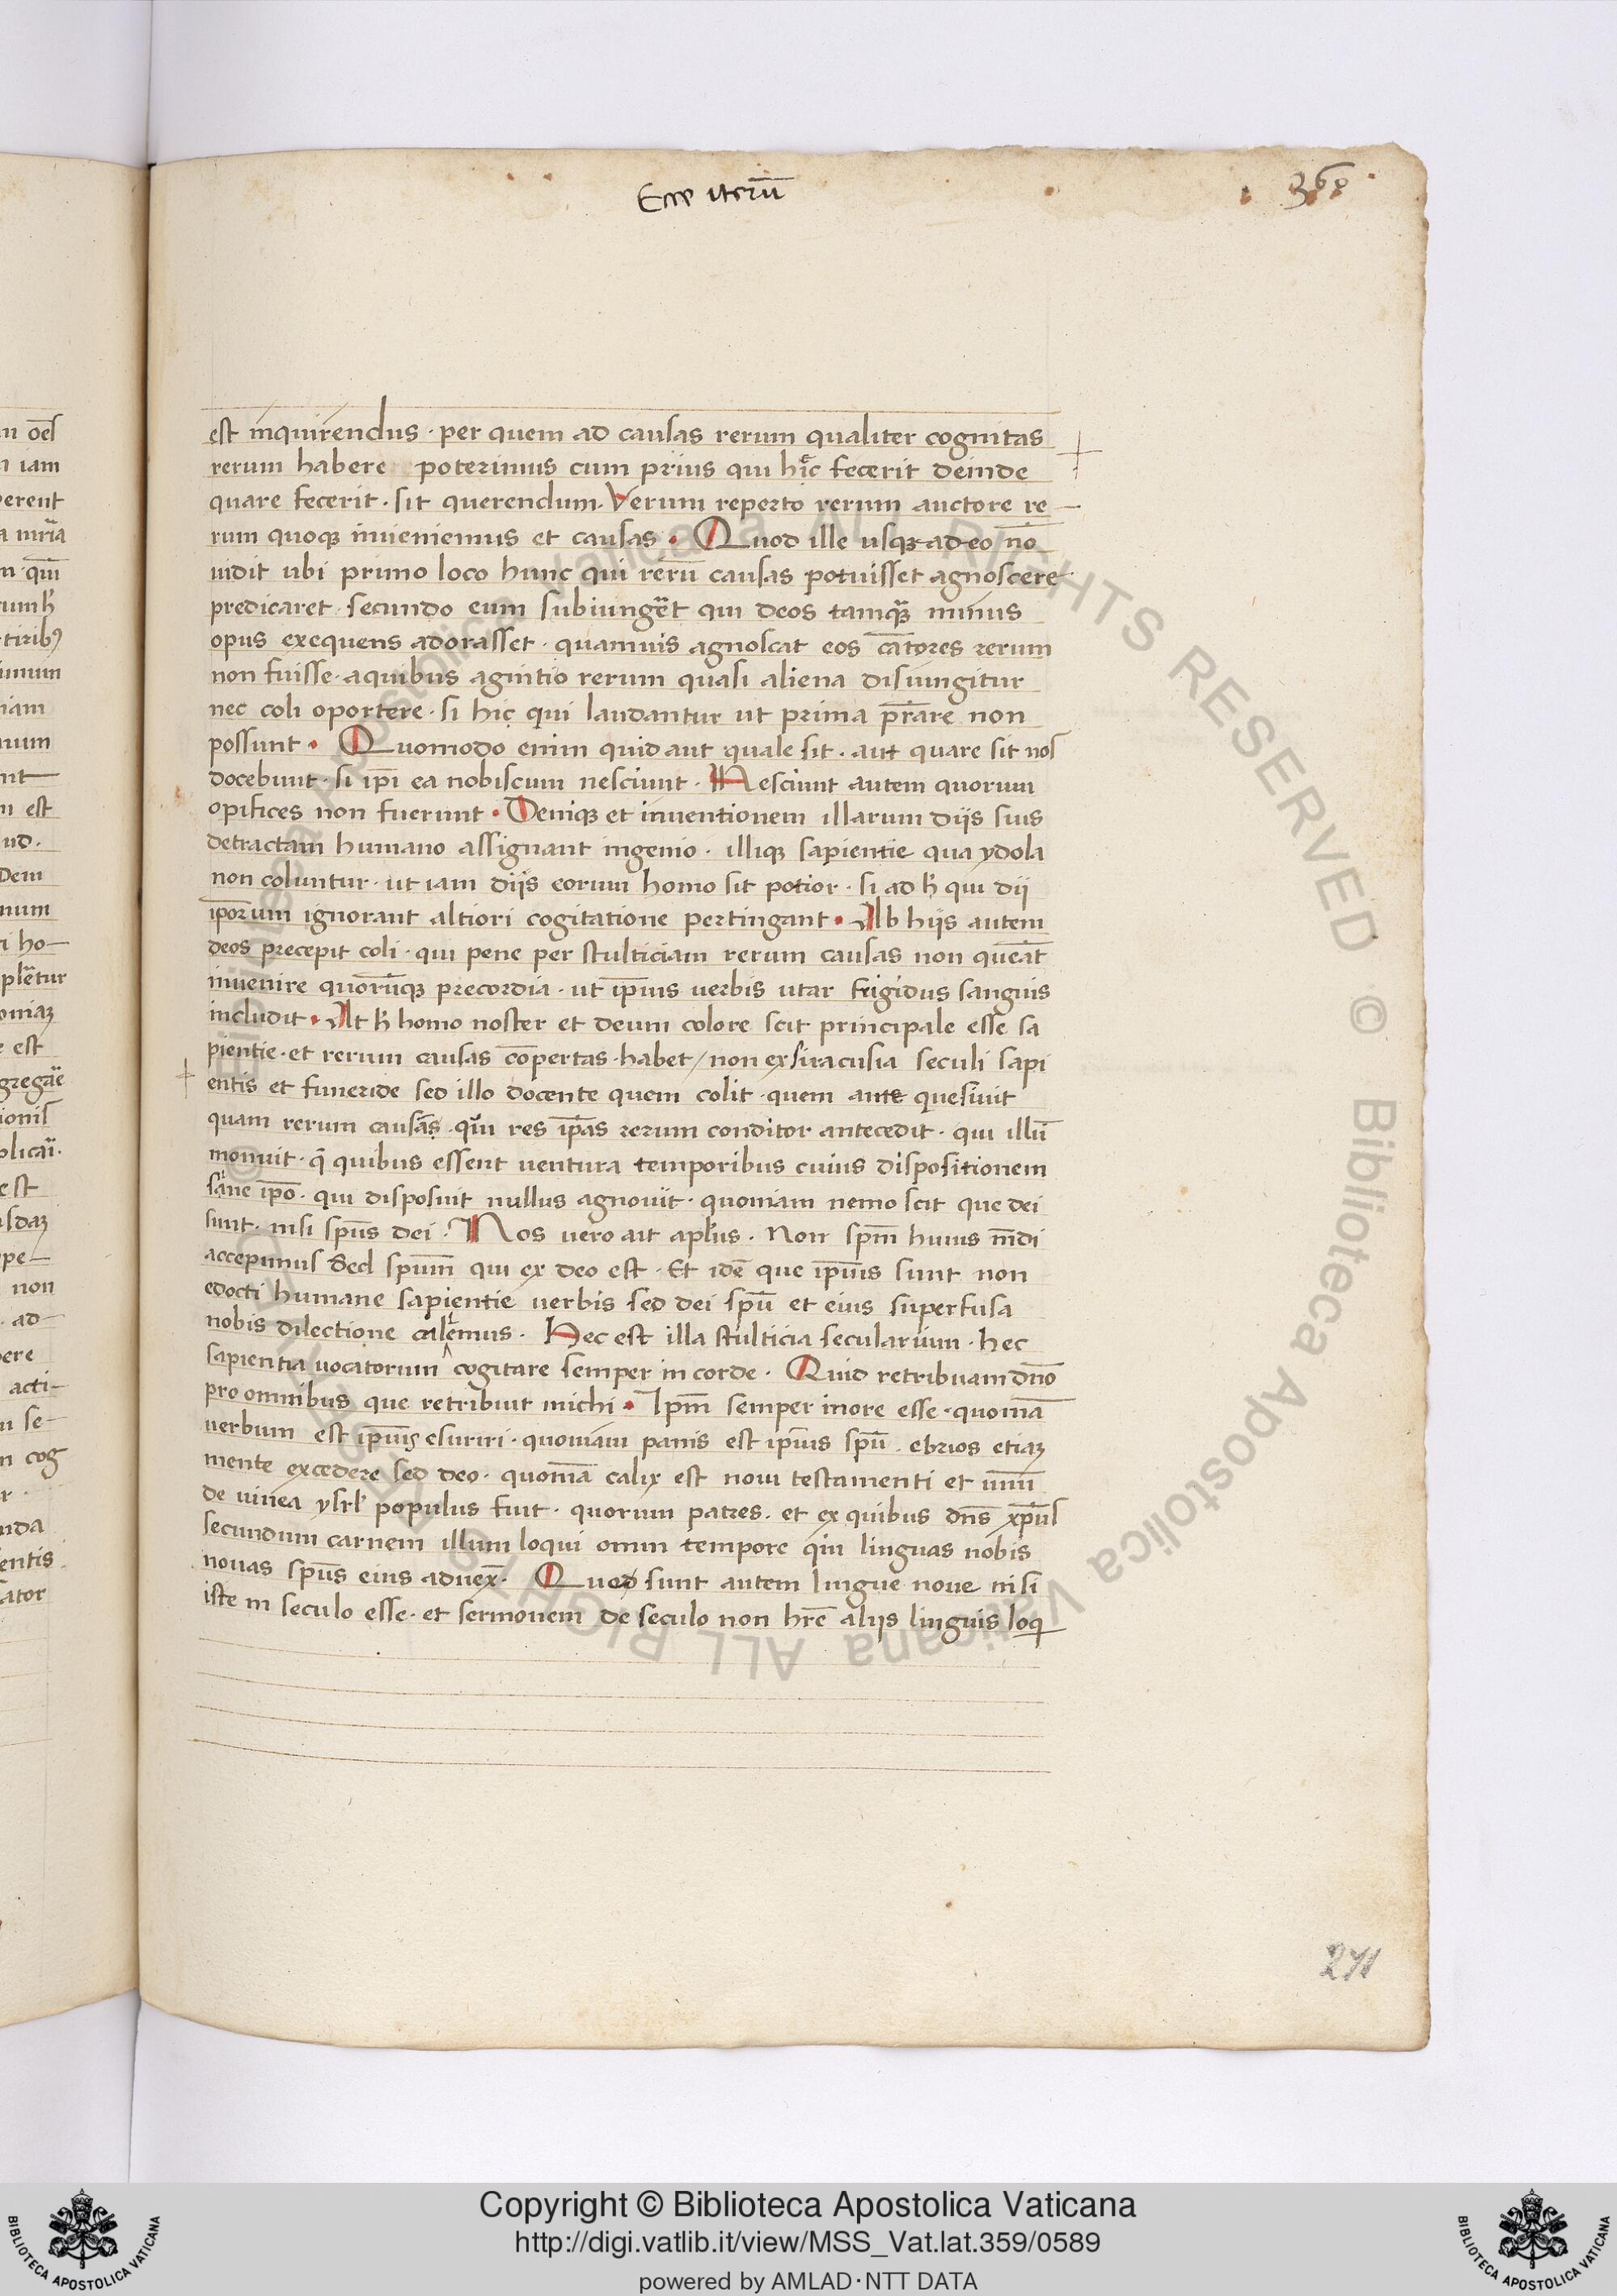 Ecce iterū
368
est inquirendus · per quem ad causas rerum qualiter cognitas
rerum habere poterimus cum prius qui hic fecerit deinde
quare fecerit · sit querendum · Verum reperto rerum auctore re
rum quoqꝫ inueniemus et causas · Quod ille usqꝫ adeo nō
uidit ubi primo loco hunc qui rerū causas potuisset agnoscere
predicaret · secundo eum subiungēt qui deos tamqꝫ minus
opus exequens adorasset · quamuis agnoscat eos cātores rerum
non fuisse · aquibus agnitio rerum quasi aliena disiungitur
nec coli oportere · si hic qui laudantur ut prima prāre non
possunt · Quomodo enim quid aut quale sit · aut quare sit nos
docebunt · si ipi ea nobiscum nesciunt · Nesciunt autem quorum
opifices non fuerunt · Deniqꝫ et inuentionem illarum diis suis
detractam humano assignant ingenio · illiqꝫ sapientie qua ydola
non coluntur · ut iam diis eorum homo sit potior · si ad h̄ qui dii
ip̄orum ignorant altiori cogitatione pertingant · Ab hiis autem
deos precepit coli · qui pene per stulticiam rerum causas non queāt
inuenire quorūqꝫ precordia · ut ip̄ius uerbis utar frigidus sanguis
includit · At h̄ homo noster et deum colore scit principale esse sa
pientie · et rerum causas cōpertas · habet / non ex siracusia seculi sapi
entis et funeride sed illo docente quem colit · quem ante quesiuit
quam rerum causās · qui res ip̄as rerum conditor antecedit · qui illū
monuit · q̄ quibus essent uentura temporibus cuius dispositionem
sāne ip̄o · qui disposuit nullus agnouit · quoniam nemo scit que dei
sunt · nisi sp̄us dei · Nos uero ait apl̄us · Non sp̄m huius mūdi
accepimus Sed sp̄um qui ex deo est · Et idē que ip̄ius sunt non
edocti humane sapientie uerbis sed dei sp̄u et eius superfusa
nobis dilectione calemus · Hec est illa stulticia secularium · hec
sapientia uocatorum cogitare semper in corde · Quid retribuam dn̄o
pro omnibus que retribuit michi · Ip̄m semper inore esse · quoniā
uerbum est ip̄ius esuriri · quoniam panis est ip̄ius sp̄u · ebrios etiaꝫ
mente excedere sed deo · quoniā calix est noui testamenti et uinū
de uinea ysrl̄ populus fuit · quorum patres · et ex quibus dn̄s xp̄us
secundum carnem illum loqui omni tempore qui linguas nobis
nouas sp̄us eius aduex̄ · Qued sunt autem lingue noue nisi
iste in seculo esse · et sermonem de seculo non hr̄e aliis linguis loq̄
271
Copyright © Biblioteca Apostolica Vaticana
http://digi.vatlib.it/view/MSS_Vat.lat.359/0589
powered by AMLAD·NTT DATA
BIBLIOTECA APOSTOLICA VATICANA
BIBLIOTECA APOSTOLICA VATICANA